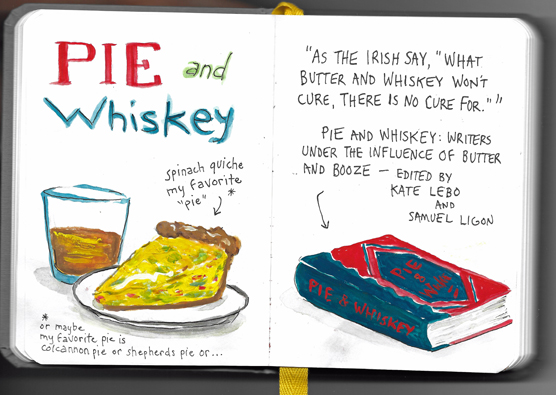 PIE and
Whiskey
spinach quiche
my favorite
"pie" *
*
or maybe
my favorite pie is
colcannon pie or shepherds pie or...
"AS THE IRISH SAY, "WHAT
BUTTER AND WHISKEY WON'T
CURE, THERE IS NO CURE FOR.""
PIE AND WHISKEY: WRITERS
UNDER THE INFLUENCE OF BUTTER
AND BOOZE — EDITED BY
KATE LEBO
AND
SAMUEL LIGON
PIE &
PIE & WHISKEY